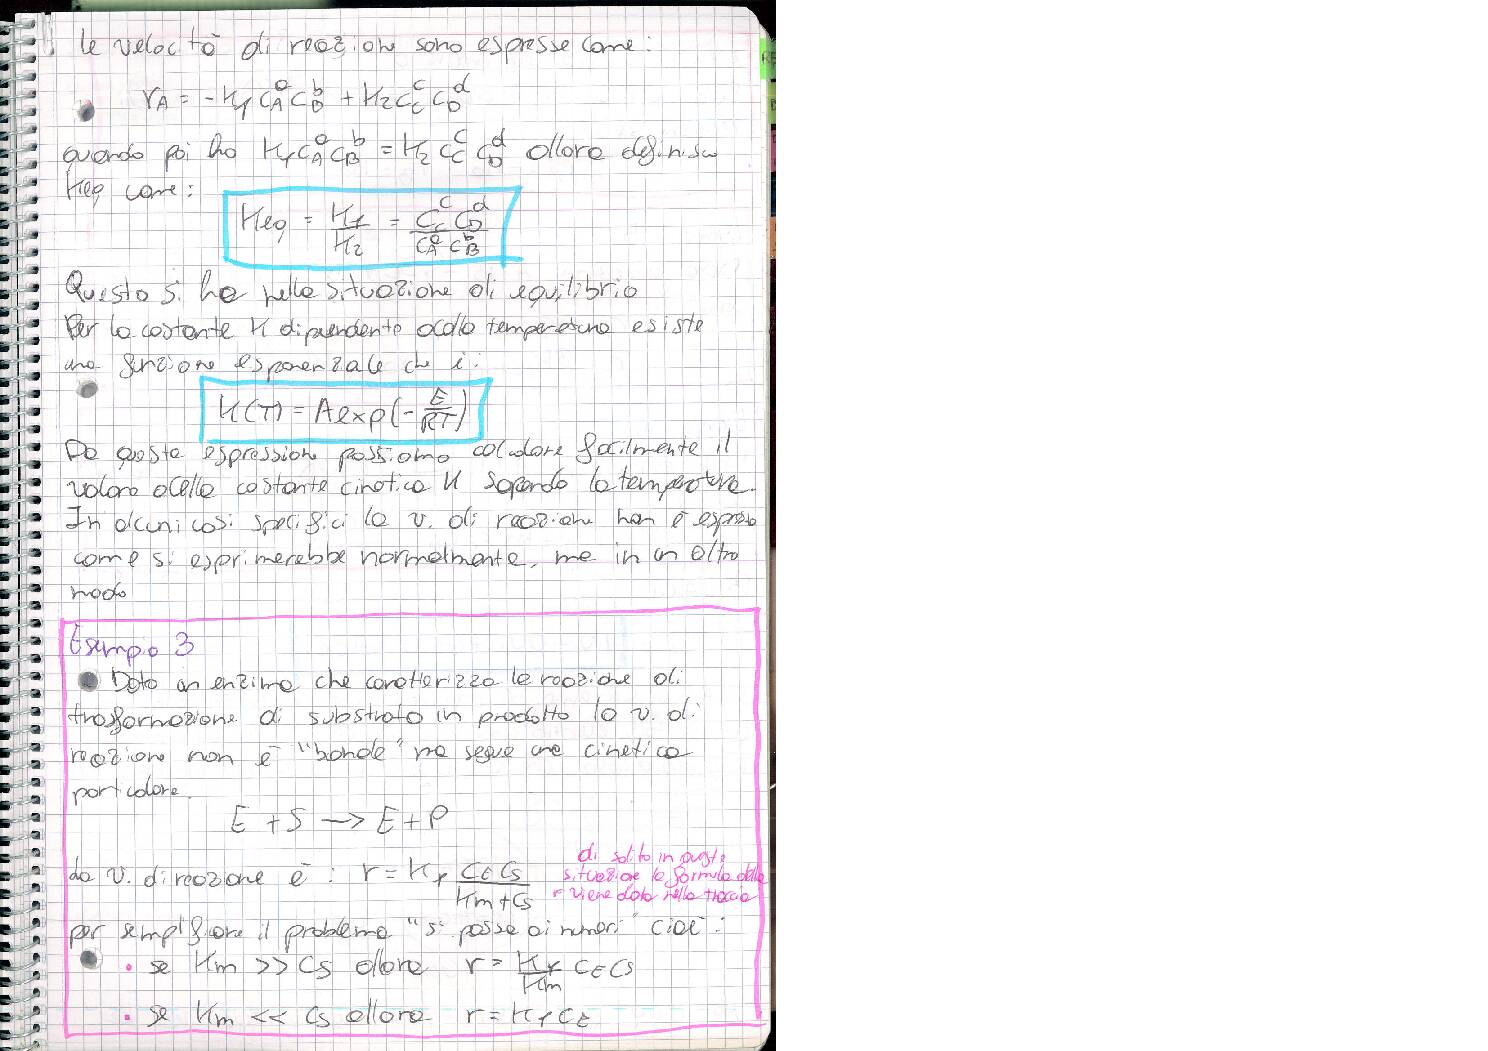 le velocità di reazione sono espresse come:
rA = -K1 CA^a CB^b + K2 CC^c CD^d
quando poi ho K1 CA^a CB^b = K2 CC^c CD^d allora definisco
Keq come:
Keq = K1/K2 = CC^c CD^d / CA^a CB^b
Questo si ha nella situazione di equilibrio
Per la costante K dipendente dalla temperatura esiste
una funzione esponenziale che è:
K(T) = A exp(-E/RT)
Da questa espressione possiamo calcolare facilmente il
valore della costante cinetica K sapendo la temperatura.
In alcuni casi specifici la v. di reazione non è espressa
come si esprimerebbe normalmente, ma in un altro
modo
Esempio 3
Dato un enzima che caratterizza la reazione di
trasformazione di substrato in prodotto la v. di
reazione non è "banale" ma segue una cinetica
particolare.
E + S → E + P
la v. di reazione è : r = K1 CE CS / Km + CS
di solito in queste
situazioni la formula della
r viene data nella traccia
per semplificare il problema "si passa ai numeri" cioè:
• se Km >> CS allora r = K1/Km CE CS
• se Km << CS allora r = K1 CE